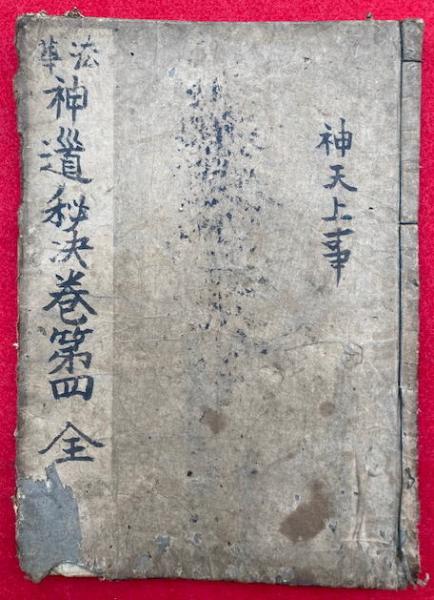 神天上事
法華
神道秘决巻第四 全